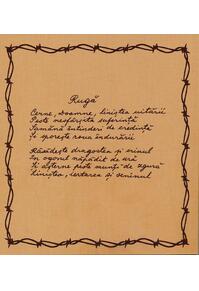 Rugă
Cerne, Doamne, liniștea uitării
Peste nesfârșita suferință
Seamănă întinderi de credință
Și sporește roua îndurării
Răsădește dragostea și crinul
În ogorul năpădit de ură
Și așterne peste munți de zgură
Liniștea, iertarea și seninul